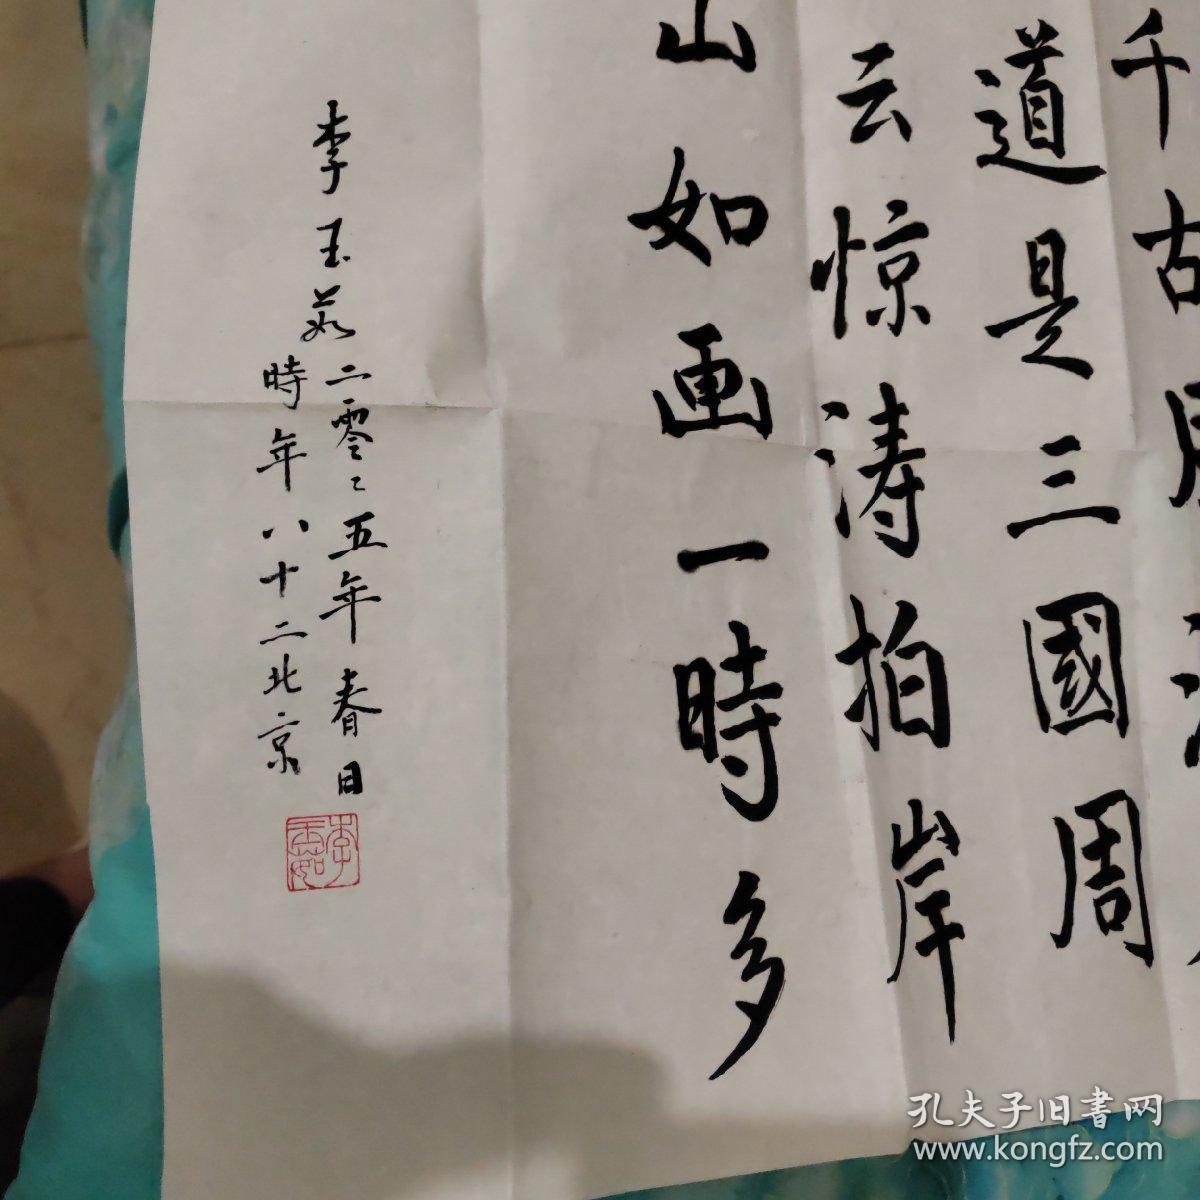 千古風
道是三國周
云惊涛拍岸
山如画一時多
李玉茹二零零五年春日
時年八十二北京
李玉茹
孔夫子旧書网
www.kongfz.com